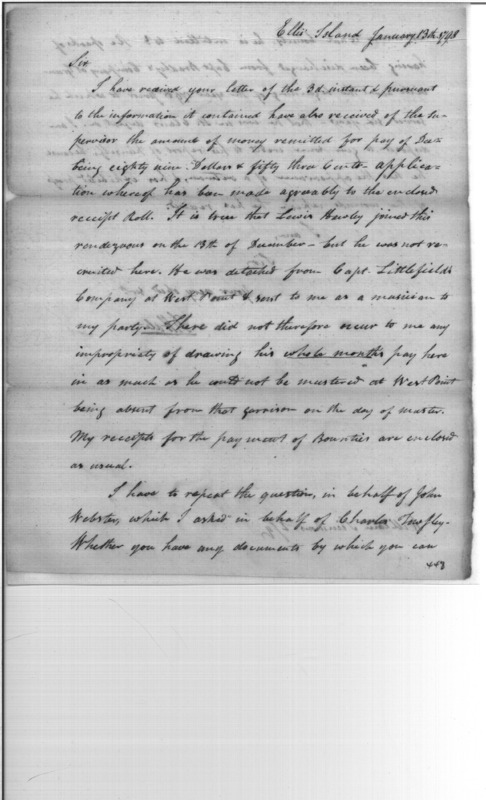 Ellis Island January 13th. 1798
Sir
I have received your letter of the 3d. instant & pursuant
to the information it contained have also received of the Su-
pervisor the amount of money remitted for pay of Decr.
being eighty nine Dollars & fifty three Cents - applica-
tion whereof has been made agreeably to the enclosed
receipt Roll. It is true that Lewis Hurley joined this
rendezvous on the 13th of December - but he was not re-
cruited here. He was detached from Capt. Littlefield's
Company at West Point & sent to me as a musician to
my party. There did not therefore occur to me any
impropriety of drawing his whole month's pay here
in as much as he could not be mustered at West Point
being absent from that garrison on the day of muster.
My receipts for the payment of Bounties are enclosed
as usual.
I have to repeat the question, in behalf of John
Webster, which I asked in behalf of Charles
Whether you have any documents by which you can
443